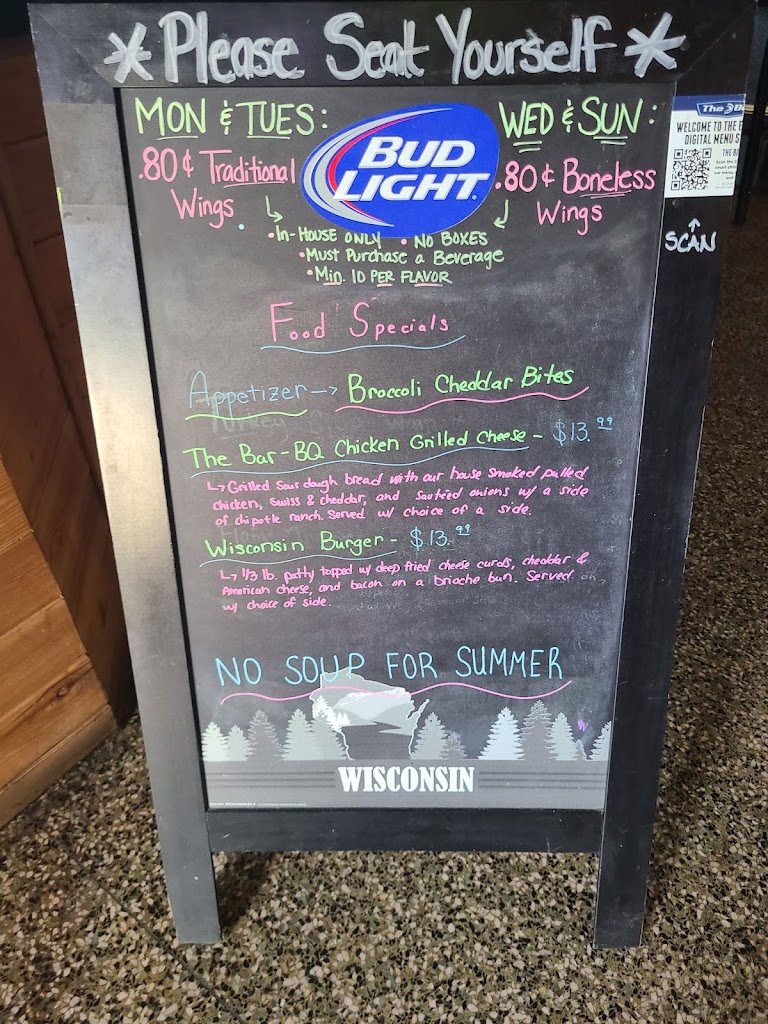 *Please Seat Yourself*
MON & TUES:
.80¢ Traditional
Wings
BUD
LIGHT.
WED & SUN:
.80¢ Boneless
Wings
• In-House ONLY • No BOXES
• Must Purchase a Beverage
• Min. 10 PER FLAVOR
WELCOME TO THE
DIGITAL MENU
SCAN
Food Specials
Appetizer → Broccoli Cheddar Bites
The Bar-BQ Chicken Grilled Cheese - $13.99
↳ Grilled Sour dough bread with our house smoked pulled
chicken, swiss & cheddar, and sautéed onions w/ a side
of chipotle ranch. Served w/ choice of a side.
Wisconsin Burger - $13.99
↳ 1/3 lb. patty topped w/ deep fried cheese curds, cheddar &
American cheese, and bacon on a brioche bun. Served
w/ choice of side.
NO SOUP FOR SUMMER
WISCONSIN